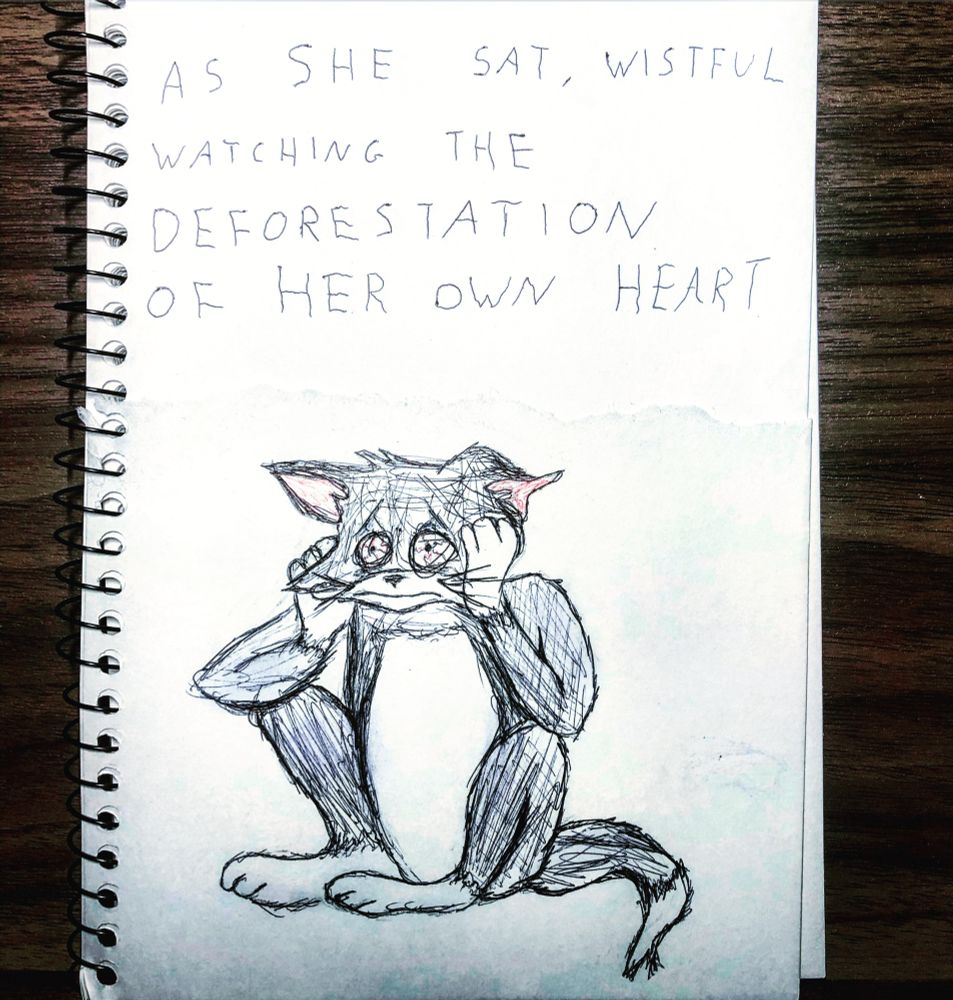 AS SHE SAT, WISTFUL
WATCHING THE
DEFORESTATION
OF HER OWN HEART